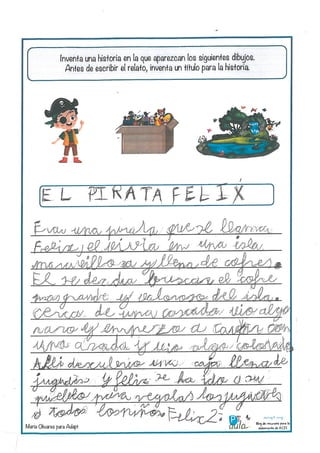 Inventa una historia en la que aparezcan los siguientes dibujos.
Antes de escribir el relato, inventa un título para la historia.
EL PIRATA FELIX
Era una pirata que se llama
Felix, el vivia en una isla
maravillosa y llena de cofres.
El se desdia buscar el cofre
mas grande y valoroso del isla.
cerca de una cascada vio algo
raro y empezo a con
una azada y vio algo colorado,
Alli descubrio una caja llena de
jugetes y felix se ha ido a su
pueblo para regalas los jugetes
a todos los niños Felix 2.
María Olivares para Aulapt
aula PT